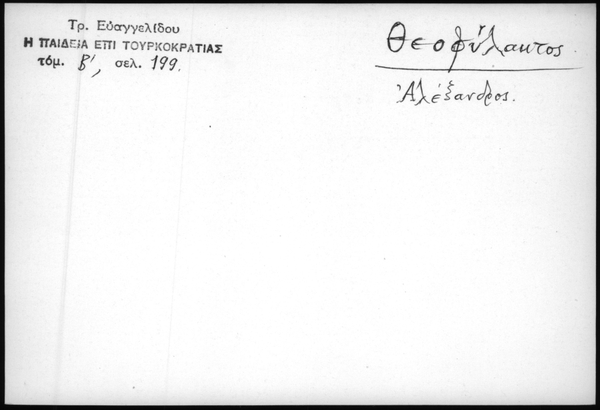 Τρ. Εὐαγγελίδου
Η ΠΑΙΔΕΙΑ ΕΠΙ ΤΟΥΡΚΟΚΡΑΤΙΑΣ
τόμ. Β', σελ. 199.
Θεοφύλακτος
Ἀλέξανδρος.